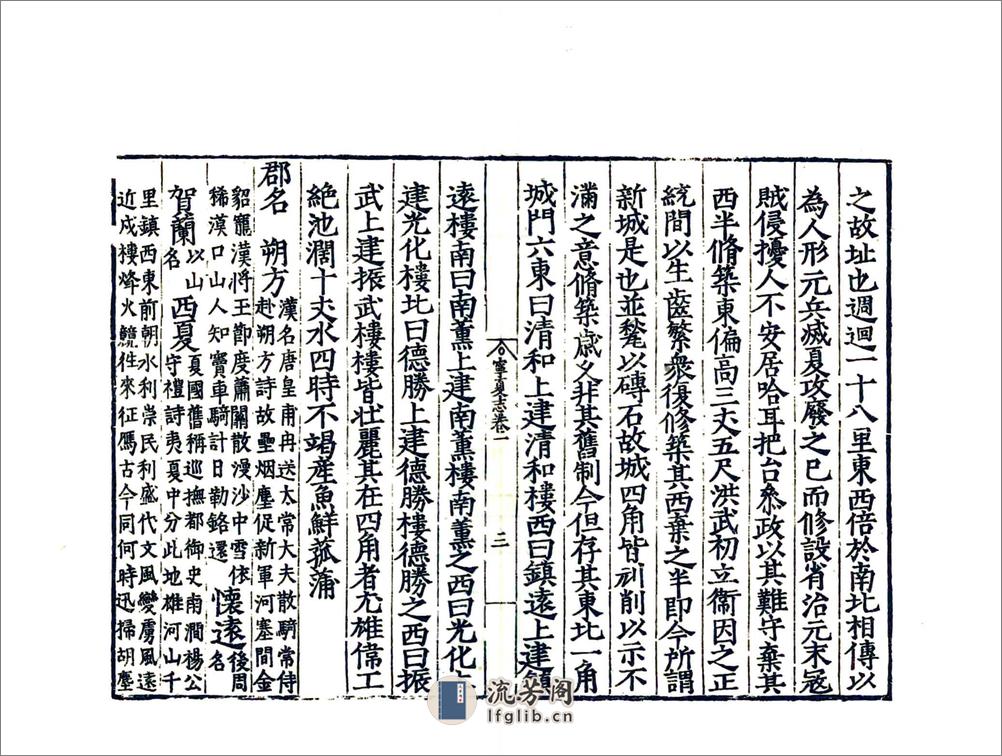 之故址也週迴一十八里東西倍於南北相傳以
為人形元兵滅夏攻廢之已而修設省治元末寇
賊侵擾人不安居哈耳把台叅政以其難守棄其
西半脩築東偏高三丈五尺洪武初立衞因之正
統間以生齒繁衆復修築其西棄之半即今所謂
新城是也並甃以磚石故城四角皆刓削以示不
滿之意脩築歲久非其舊制今但存其東北一角
城門六東曰清和上建清和樓西曰鎮遠上建鎮
寧夏志卷一
三
遠樓南曰南薰上建南薰樓南薰之西曰光化上
建光化樓北曰德勝上建德勝樓德勝之西曰振
武上建振武樓樓皆壯麗其在四角者尤雄偉工
絶池濶十丈水四時不竭産魚鮮菰蒲
郡名 朔方漢名唐皇甫冉送太常大夫散騎常侍
赴朔方詩故壘烟塵促新軍河塞間金
貂寵漢將玉節度蕭關散漫沙中雪依
稀漢口山人知竇車騎計日勒銘還 懷遠後周
名
賀蘭以山
名 西夏夏國舊稱巡撫都御史南澗楊公
守禮詩夷夏中分此地雄河山千
里鎮西東前朝水利崇民利盛代文風變虜風遠
近戍樓烽火競往來征鴈古今同何時迅掃胡塵
流芳阁
lfglib.cn